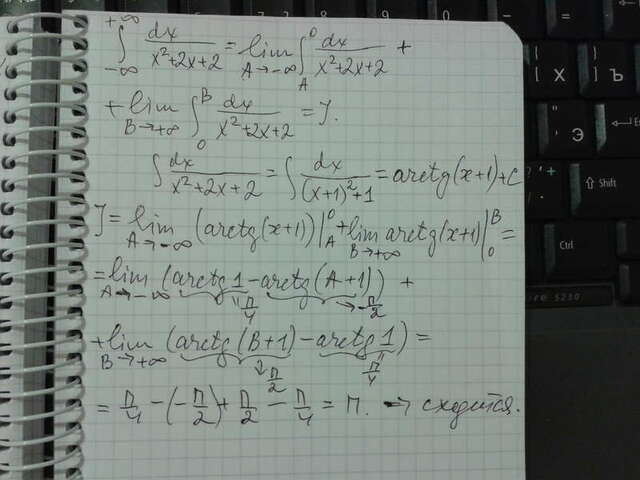 ∫_{-∞}^{+∞} dx/(x²+2x+2) = lim_{A→-∞} ∫_A^0 dx/(x²+2x+2) +
+ lim_{B→+∞} ∫_0^B dx/(x²+2x+2) = J.
∫ dx/(x²+2x+2) = ∫ dx/((x+1)²+1) = arctg(x+1)+C
J = lim_{A→-∞} (arctg(x+1))|_A^0 + lim_{B→+∞} arctg(x+1)|_0^B =
= lim_{A→-∞} (arctg 1 - arctg(A+1)) +
"π/4 → -π/2
+ lim_{B→+∞} (arctg(B+1) - arctg 1) =
↓ π/2 "π/4
= π/4 - (-π/2) + π/2 - π/4 = π. → сходится.
Х
Ъ
Э
Shift
Ctrl
5230